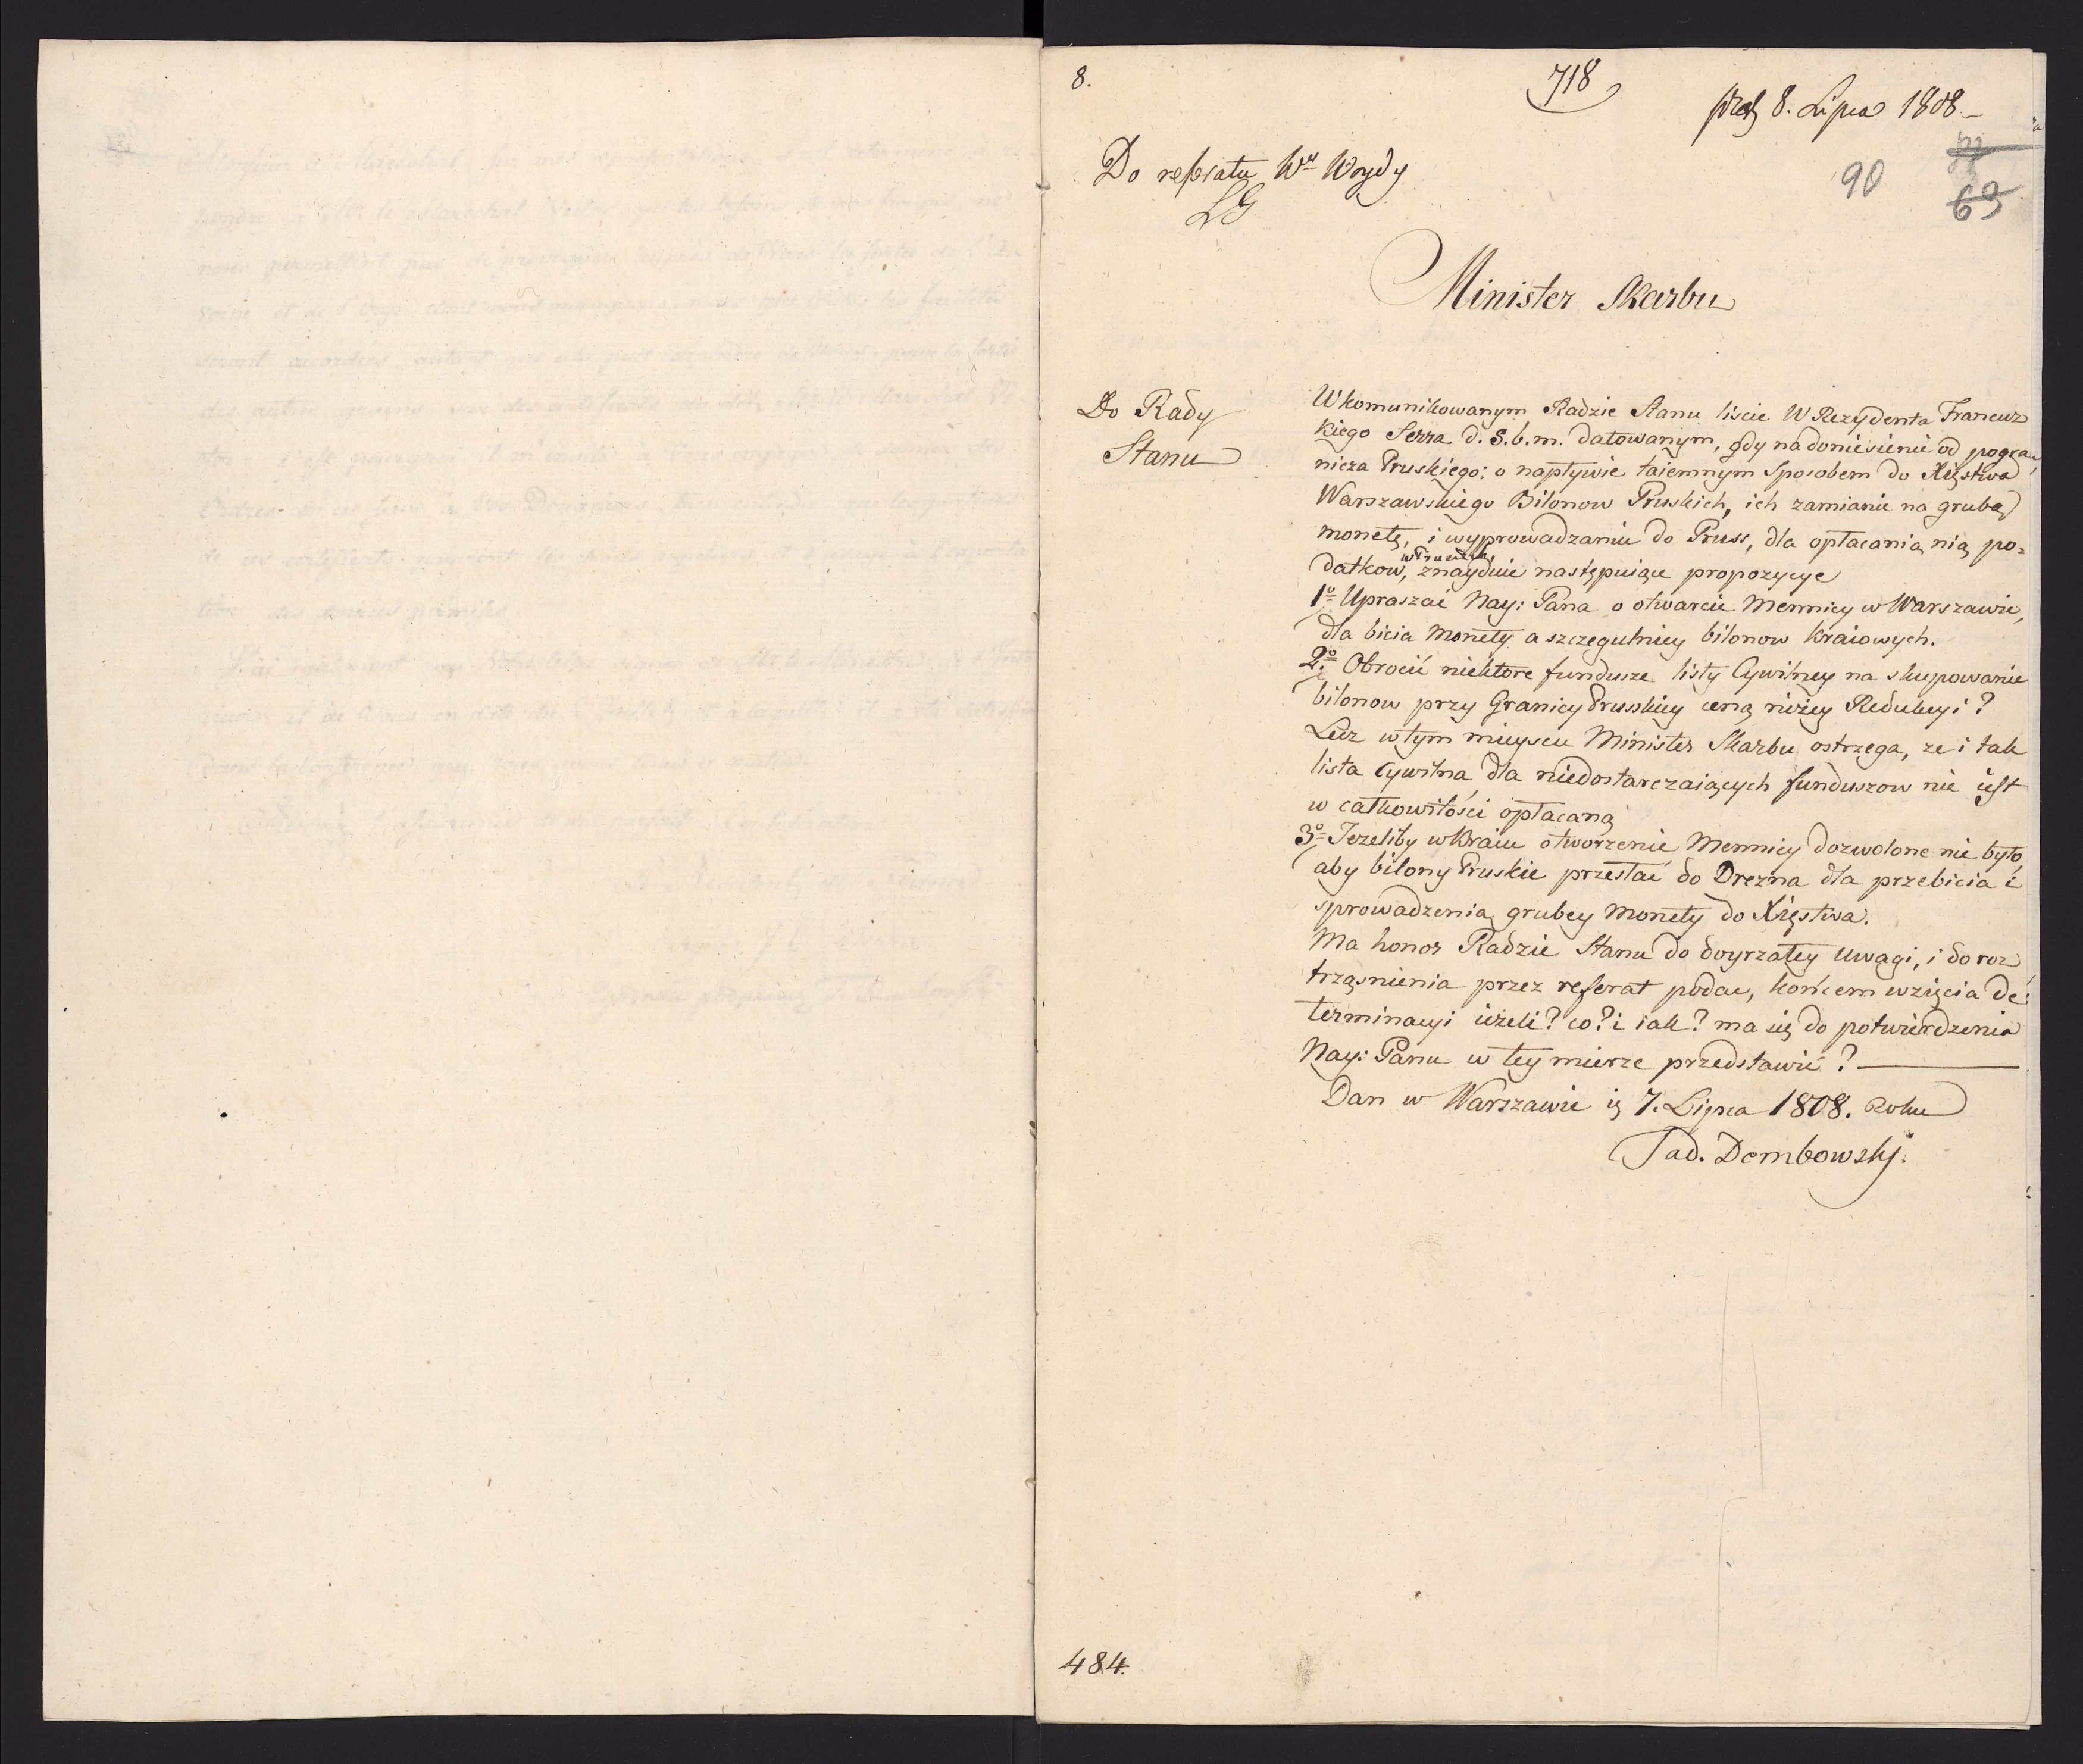 8.
718
8. Lipca 1808.
90
69
Do referatu Wo Woydy
LG
Minister Skarbu
Do Rady
Stanu
W komunikowanym Radzie Stanu liscie W Rezydenta Francuz
kiego Serra d. 5. b. m. datowanym, gdy na doniesienie od pogra¬
nicza Pruskiego: o napływie taiemnym sposobem do Xięstwa
Warszawskiego Bilonow Pruskich, ich zamianie na grubą
monetę, i wyprowadzaniu do Pruss, dla opłacania nią po¬
datkow, znayduie następuiące propozycye
1o Upraszać Nay: Pana o otwarcie Mennicy w Warszawie,
dla bicia Monety a szczegulniey bilonow kraiowych.
2o Obrocić niektore fundusze listy Cywilney na skupowanie
bilonow przy Granicy Pruskiey ceną niżey Redukcyi?
Lecz w tym mieyscu Minister Skarbu ostrzega, ze i tak
lista Cywilna dla niedostarczaiących funduszow nie iest
w całkowitości opłacaną
3o Jezeliby w Kraiu otworzenie Mennicy dozwolone nie było,
aby bilony Pruskie przesłać do Drezna dla przebicia i
sprowadzenia grubey Monety do Xięstwa.
Ma honor Radzie Stanu do doyrzałey uwagi, i do roz
trząśnienia przez referat podać, końcem wzięcia de:
terminacyi ieżeli? co? i iak? ma się do potwierdzenia
Nay: Panu w tey mierze przedstawić?
Dan w Warszawie 7. Lipca 1808. Roku
Tad. Dembowskj.
484.